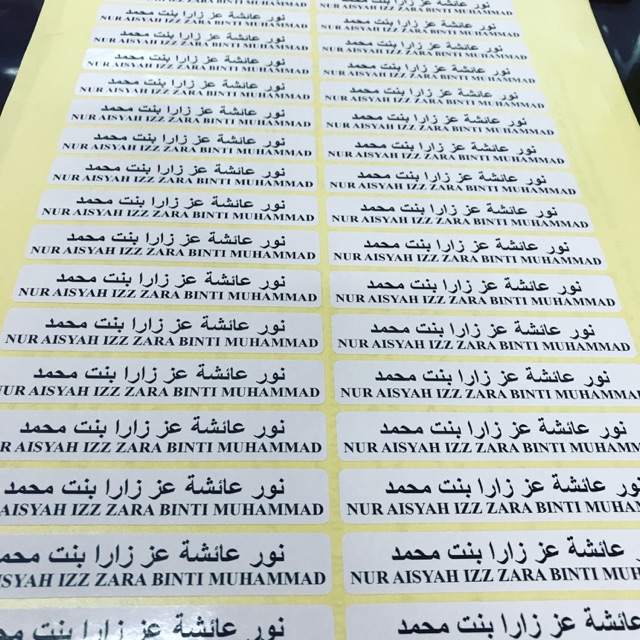 NUR AISYAH IZZ ZARA BINTI MUHAMMAD
نور عائشة عز زارا بنت محمد
NUR AISYAH IZZ ZARA BINTI MUHAMMAD
نور عائشة عز زارا بنت محمد
NUR AISYAH IZZ ZARA BINTI MUHAMMAD
نور عائشة عز زارا بنت محمد
NUR AISYAH IZZ ZARA BINTI MUHAMMAD
نور عائشة عز زارا بنت محمد
NUR AISYAH IZZ ZARA BINTI MUHAMMAD
نور عائشة عز زارا بنت محمد
NUR AISYAH IZZ ZARA BINTI MUHAMMAD
نور عائشة عز زارا بنت محمد
NUR AISYAH IZZ ZARA BINTI MUHAMMAD
نور عائشة عز زارا بنت محمد
NUR AISYAH IZZ ZARA BINTI MUHAMMAD
نور عائشة عز زارا بنت محمد
NUR AISYAH IZZ ZARA BINTI MUHAMMAD
نور عائشة عز زارا بنت محمد
NUR AISYAH IZZ ZARA BINTI MUHAMMAD
نور عائشة عز زارا بنت محمد
NUR AISYAH IZZ ZARA BINTI MUHAMMAD
نور عائشة عز زارا بنت محمد
NUR AISYAH IZZ ZARA BINTI MUHAMMAD
نور عائشة عز زارا بنت محمد
AISYAH IZZ ZARA BINTI MUHAMMAD
نور عائشة عز زارا بنت محمد
AISYAH IZZ ZARA BINTI MUHAMMAD
نور عائشة عز زارا بنت محمد
AISYAH IZZ ZARA BINTI MUHAMMAD
نور عائشة عز زارا بنت محمد
IZZ ZARA BINTI MUHAMMAD
نور عائشة عز زارا بنت محمد
NUR AISYAH IZZ ZARA BINTI MUHAMMAD
نور عائشة عز زارا بنت محمد
NUR AISYAH IZZ ZARA BINTI MUHAMMAD
نور عائشة عز زارا بنت محمد
NUR AISYAH IZZ ZARA BINTI MUHAMMAD
نور عائشة عز زارا بنت محمد
NUR AISYAH IZZ ZARA BINTI MUHAMMAD
نور عائشة عز زارا بنت محمد
NUR AISYAH IZZ ZARA BINTI MUHAMMAD
نور عائشة عز زارا بنت محمد
NUR AISYAH IZZ ZARA BINTI MUHAMMAD
نور عائشة عز زارا بنت محمد
NUR AISYAH IZZ ZARA BINTI MUHAMMAD
نور عائشة عز زارا بنت محمد
NUR AISYAH IZZ ZARA BINTI MUHAMMAD
نور عائشة عز زارا بنت محمد
NUR AISYAH IZZ ZARA BINTI MUHAMMAD
نور عائشة عز زارا بنت محمد
NUR AISYAH IZZ ZARA BINTI MUHAMMAD
نور عائشة عز زارا بنت محمد
NUR AISYAH IZZ ZARA BINTI MUHAMMAD
نور عائشة عز زارا بنت محمد
NUR AISYAH IZZ ZARA BINTI MUHAMMAD
نور عائشة عز زارا بنت محمد
NUR AISYAH IZZ ZARA BINTI
نور عائشة عز زارا بنت محمد
NUR AISYAH IZZ ZARA BINTI
نور عائشة عز زارا بنت محمد
NUR AISYAH IZZ ZARA BINTI
نور عائشة عز زارا بنت محمد
NUR AISYAH IZZ ZARA BINTI
عائشة عز زارا بنت محمد